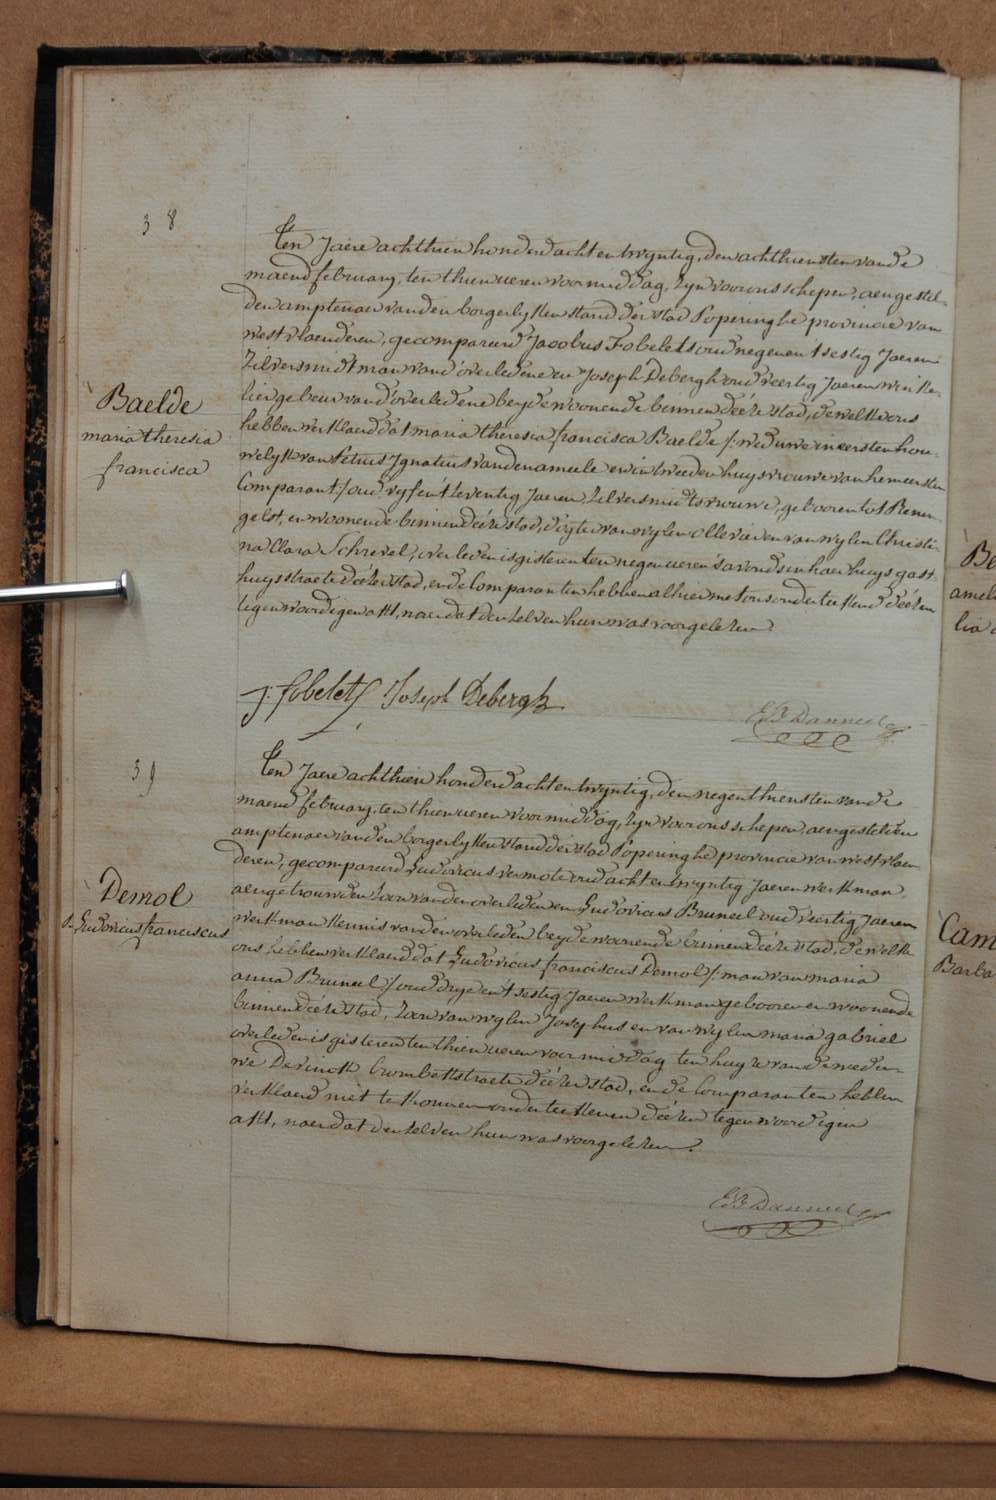 38
Baelde
maria theresia
francisca
Ten Jaere achthien honderd acht en twyntig, den achthiensten van de
maend february, ten thien ueren voormiddag, Zyn voor ons schepen, aengestel-
den amptenaer van den borgerlyken stand der stad Poperinghe provincie van
westvlaenderen, gecompareerd Jacobus Fobelets oud negenentsestig Jaeren
Zilversmidt man van d'overledene en Joseph Debergh oud veertig Jaeren winke-
lier gebeur van d'overledene beyde woonende binnen dééze stad, de welke ons
hebben verklaerd dat maria theresia francisca Baelde /: weduwe in eersten hou-
welyk van Petrus Ignatius vandenameele en in tweeden huysvrouwe van hem eersten
Comparant :/ oud vyfentzeventig Jaeren, Zilversmidtsvrouwe, gebooren tot Renin-
gelst, en woonende binnen dééze stad, dogter van wylen ollevier en van wylen Christi-
na Clara Schrevel, overleden is gisteren ten negen ueren s'avonds in haer huys gast-
huysstraete dééze stad, en de Comparanten hebben alhier met ons onderteekend déézen
tegenwoordigen akt, naer dat den zelven hun was voorgelezen.
J. Fobelets Joseph Debergh
E B Danneel
39
Demol
Ludovicus franciscus
Ten Jaere achthien honderd acht en twyntig, den negenthiensten van de
maend february, ten thien ueren voormiddag, Zyn voor ons schepen aengestelden
amptenaer van den borgerlyken stand der stad Poperinghe provincie van westvlaen-
deren, gecompareerd Ludovicus vermote oud acht en twyntig Jaeren werkman
aengetrouwden Zoon van den overleden en Ludovicus Bruneel oud veertig Jaeren
werkman kennis van den overleden beyde woonende binnen dééze stad, de welke
ons hebben verklaerd dat Ludovicus franciscus Demol /: man van maria
anna Bruneel :/ oud dryentsestig Jaeren werkman gebooren en woonende
binnen dééze stad, Zoon van wylen Josephus en van wylen maria gabriel
overleden is gisteren ten thien ueren voormiddag ten huyze van de weduw-
we Devinck brombekestraete dééze stad, en de Comparanten hebben
verklaerd niet te konnen onderteekenen déézen tegenwoordigen
akt, naer dat den zelven hun was voorgelezen.
E B Danneel
Be
amel
lia
Cam
Barba